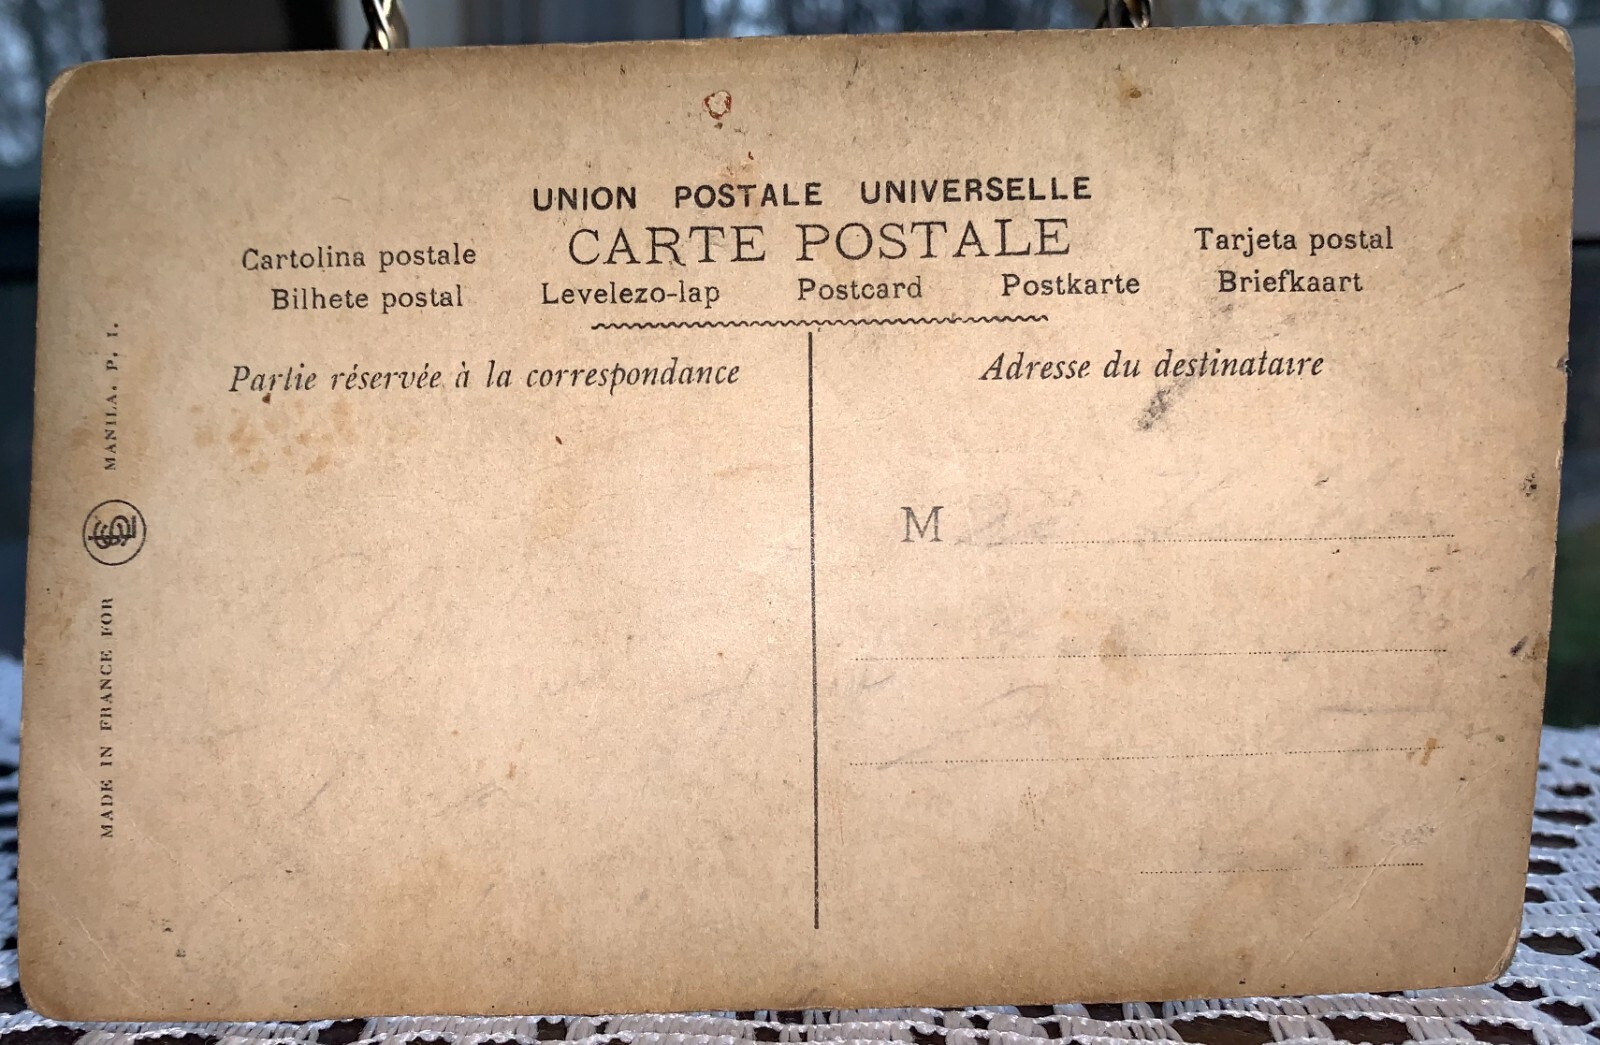 UNION POSTALE UNIVERSELLE
CARTE POSTALE
Cartolina postale Tarjeta postal
Bilhete postal Levelezo-lap Postcard Postkarte Briefkaart
Partie réservée à la correspondance
Adresse du destinataire
M
MADE IN FRANCE FOR MANILA. P. I.